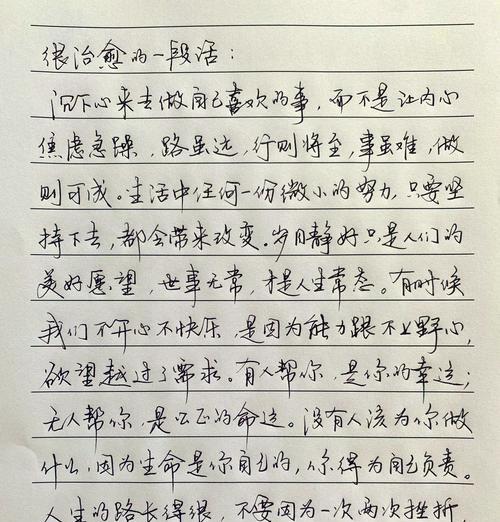 很治愈的一段话：
沉下心来去做自己喜欢的事，而不是让内心
焦虑急躁，路虽远，行则将至，事虽难，做
则可成。生活中任何一份微小的努力，只要坚
持下去，都会带来改变。岁月静好只是人们的
美好愿望，世事无常，才是人生常态。有时候
我们不开心不快乐，是因为能力跟不上野心，
欲望越过了需求。有人帮你，是你的幸运；
无人帮你，是公正的命运。没有人该为你做
什么，因为生命是你自己的，你得为自己负责。
人生的路长得很，不要因为一次两次挫折，